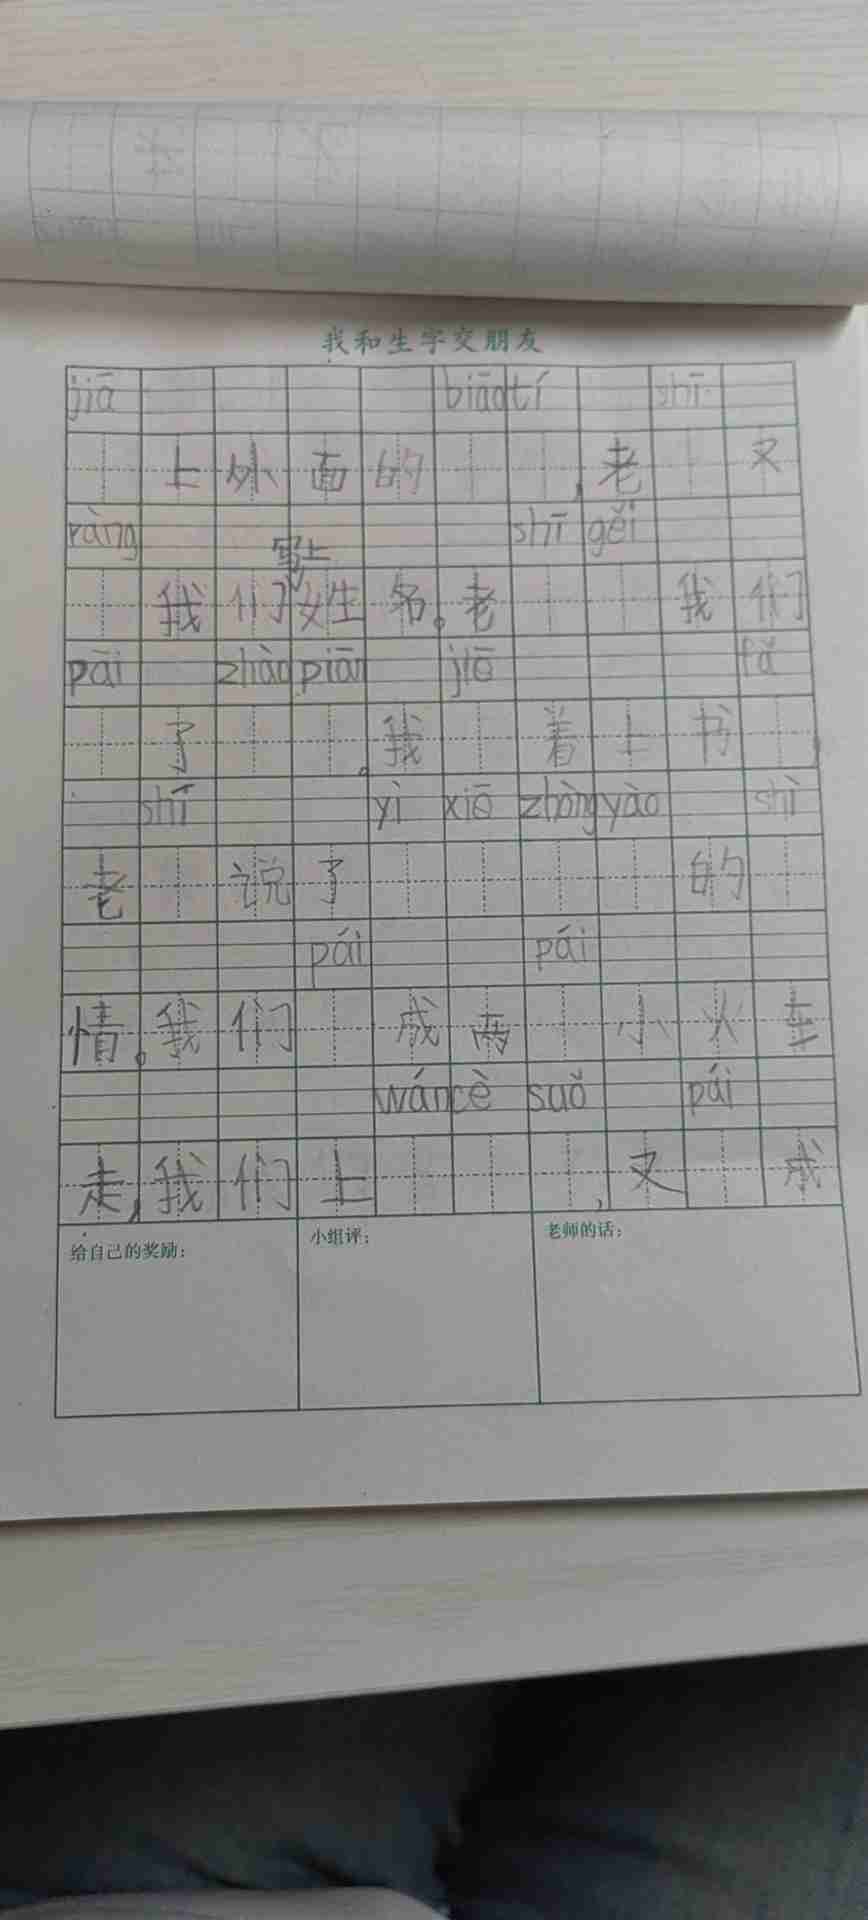 我和生字交朋友
jiā biāo tí shī
上外面的，老又
ràng shī gěi
写上
我们姓名。老我们
pāi zhào piān jiē fǎ
了。我着上书，
shī yì xiē zhòng yào shì
老说了的
pái pái
情。我们成两小火车
wán cè suǒ pái
走，我们上，又成
给自己的奖励： 小组评： 老师的话：